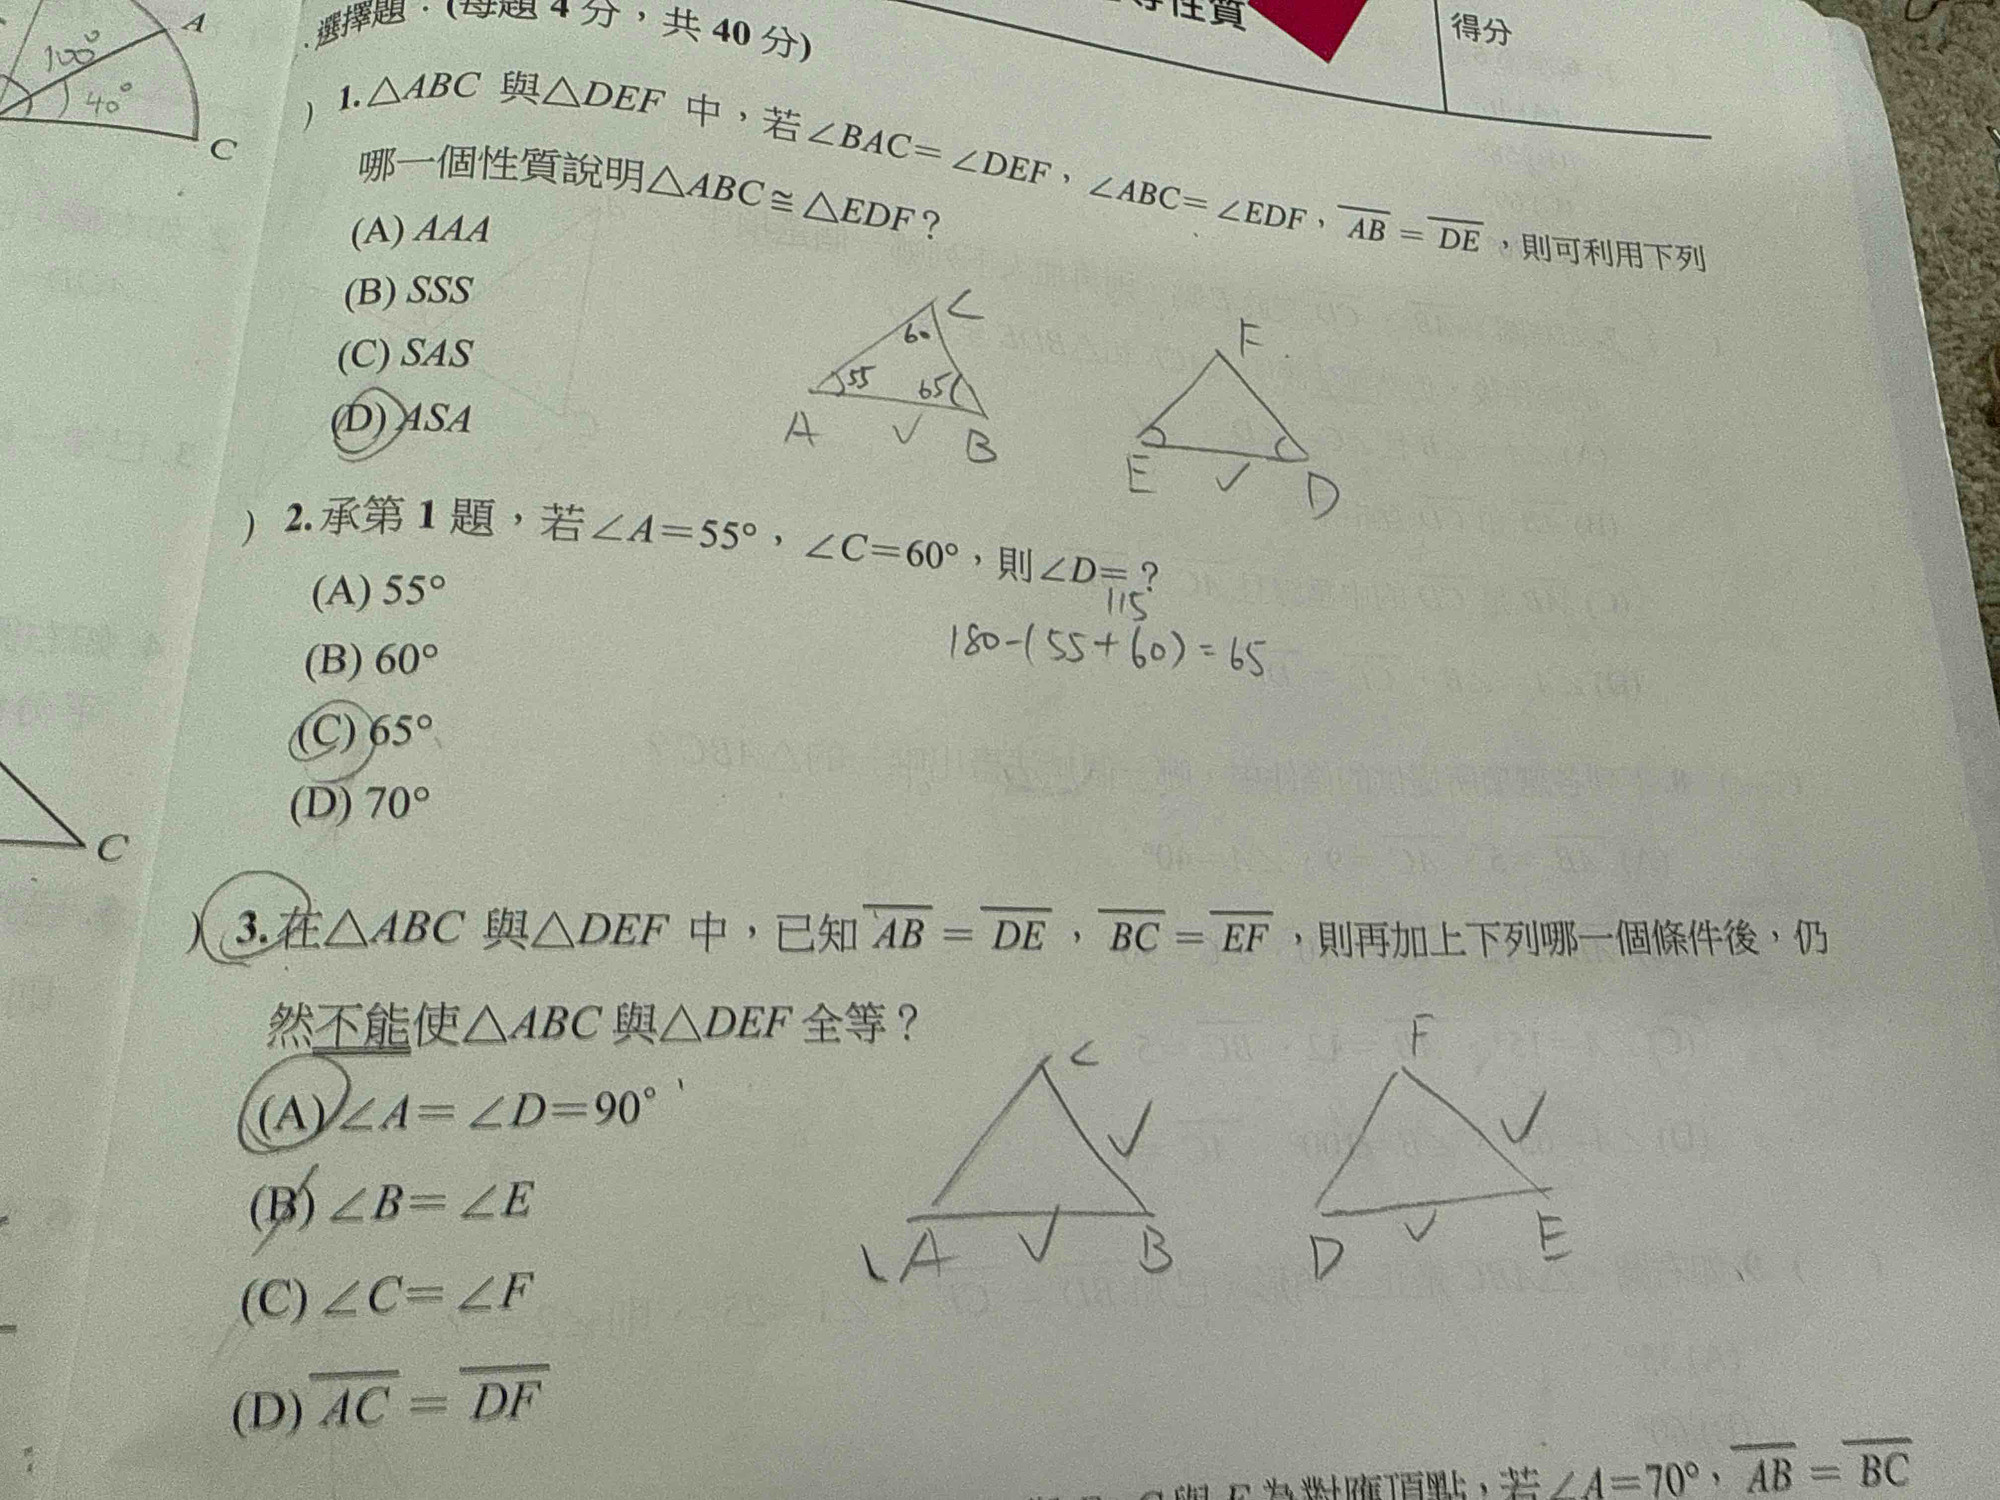 等性質
得分
選擇題：(每題 4 分，共 40 分)
) 1. △ABC 與△DEF 中，若∠BAC=∠DEF，∠ABC=∠EDF，AB=DE，則可利用下列
哪一個性質說明△ABC≅△EDF？
(A) AAA
(B) SSS
(C) SAS
(D) ASA
C
60
55
65
A
B
F
E
D
) 2. 承第 1 題，若∠A=55°，∠C=60°，則∠D=？
115
180-(55+60)=65
(A) 55°
(B) 60°
(C) 65°
(D) 70°
) 3. 在△ABC 與△DEF 中，已知AB=DE，BC=EF，則再加上下列哪一個條件後，仍
然不能使△ABC 與△DEF 全等？
(A) ∠A=∠D=90°
(B) ∠B=∠E
(C) ∠C=∠F
(D) AC=DF
C
A
B
F
D
E
為對應頂點，若∠A=70°，AB=BC
A
100°
40°
C
C